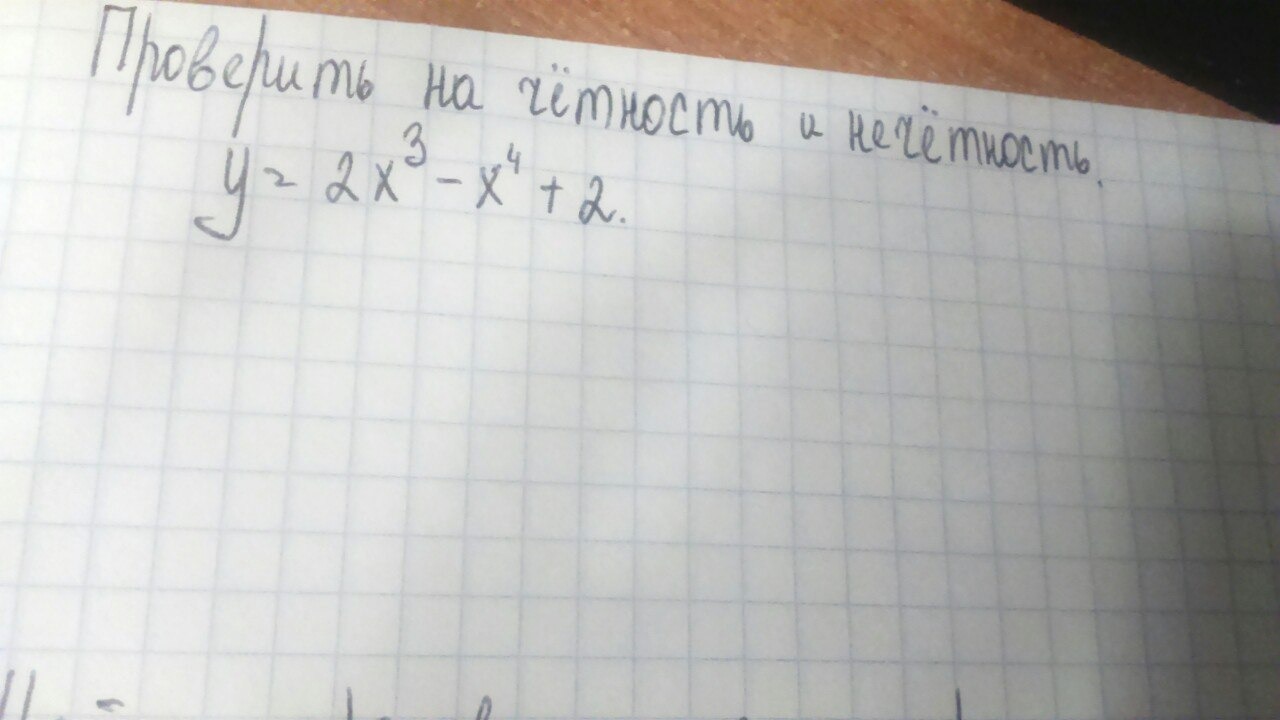 Проверить на чётность и нечётность.
y = 2x³ - x⁴ + 2.